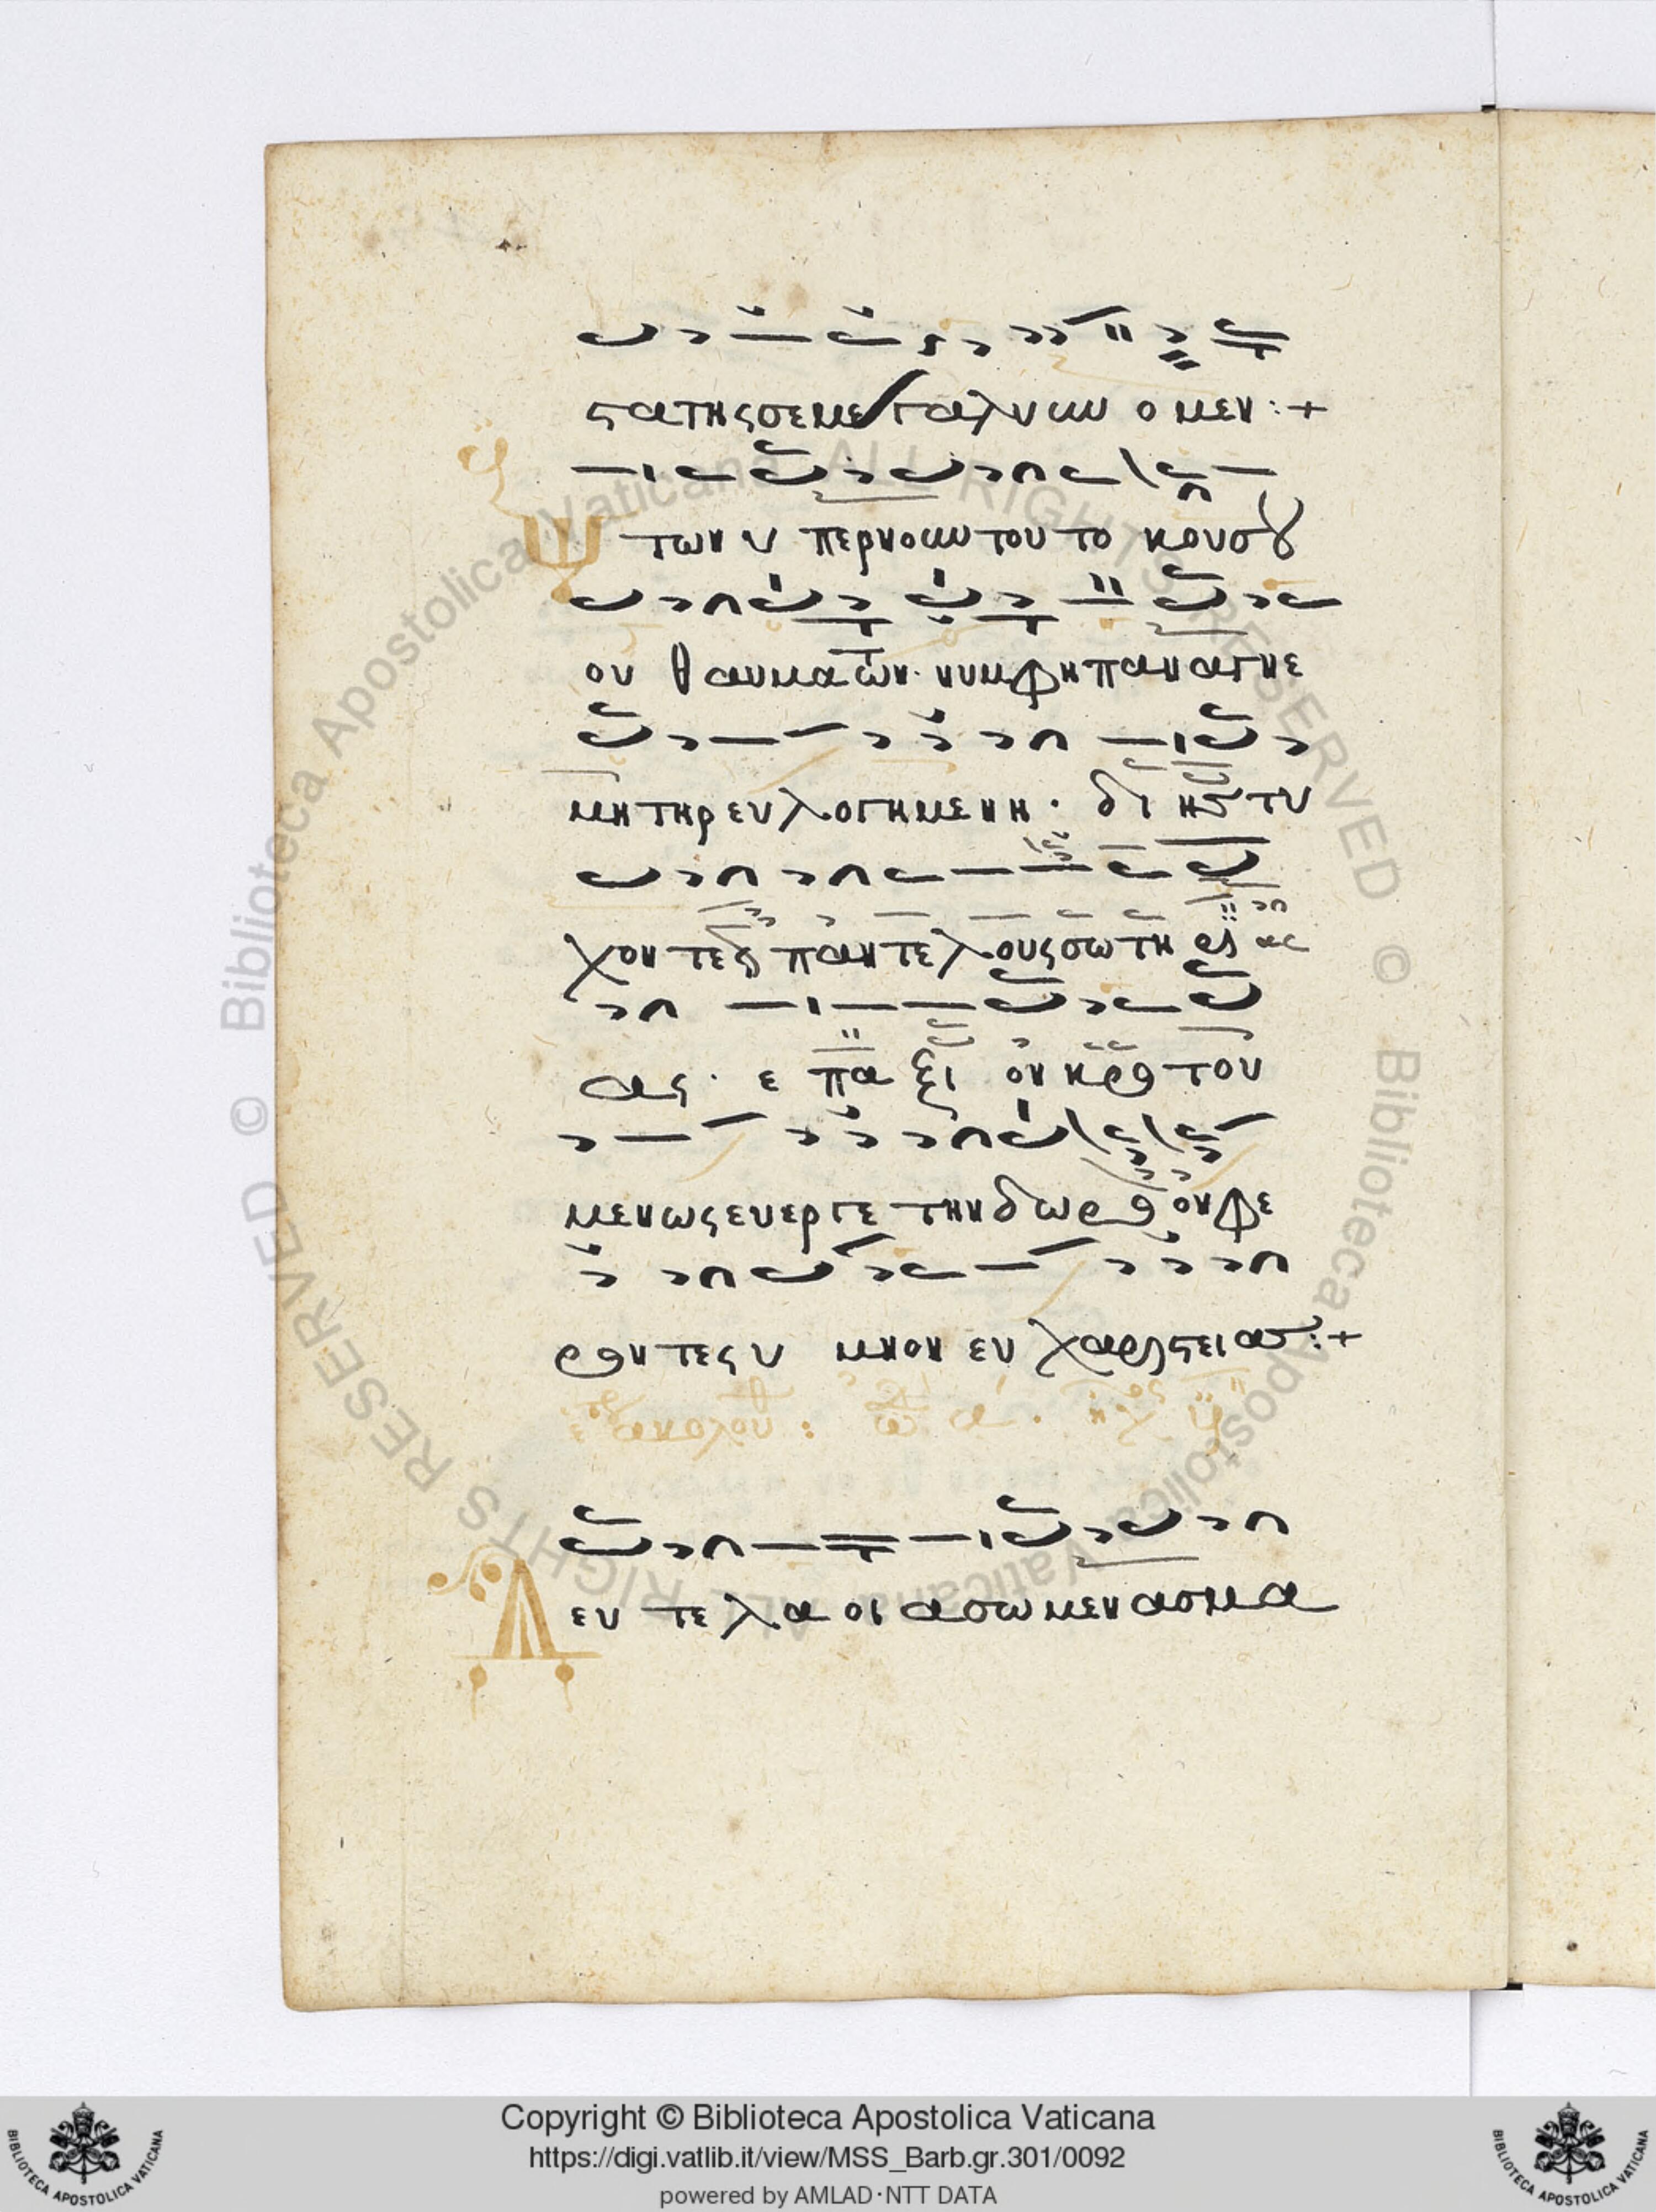 ϛατης σε μεγαλυνομεν :+
των υπερνοων τουτο κρουσ
ου θαυματων· νυμφη παναγνε
μητηρ ευλογημενη · δι ης τυ
χοντες παντελους σωτηρι
ας · επαξιον κροτου
μεν ως ευεργετην δωρον φε
ροντες υμνον ευχαριστειας :+
ευτε λαοι ασωμεν ασμα
Copyright © Biblioteca Apostolica Vaticana
https://digi.vatlib.it/view/MSS_Barb.gr.301/0092
powered by AMLAD·NTT DATA